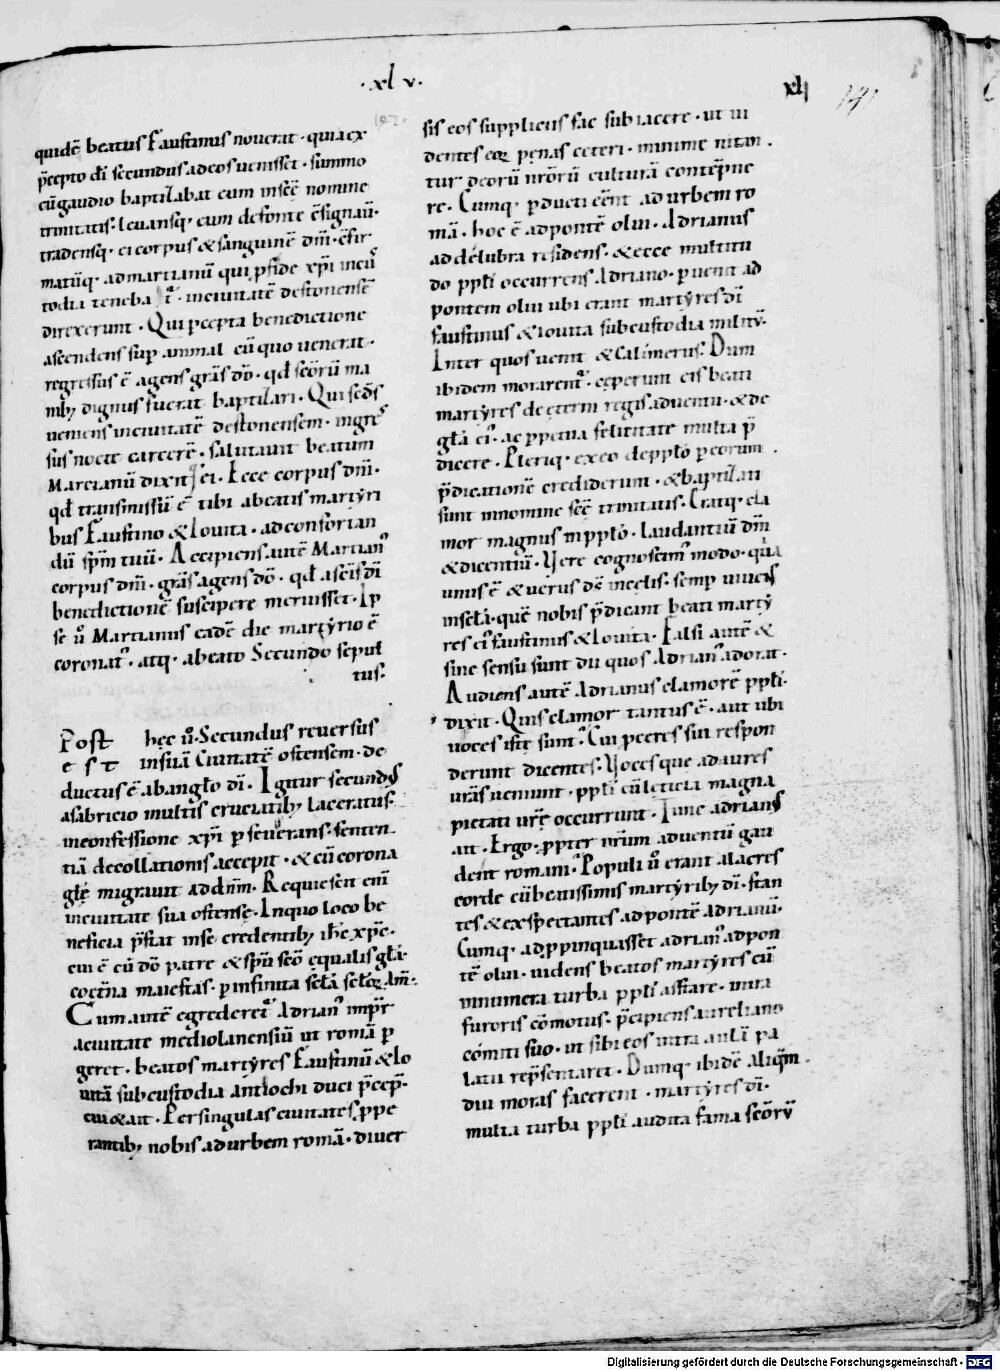 · xl v ·
xlj
141
quidē beatus Faustinus nouerat · quia ex
p̄cepto dī secundus ad eos uenisset · summo
cū gaudio baptizabat eum in sc̄e nomine
trinitatis · leuansq; eum de fonte c̄signau̅ ·
tradensq; ei corpus & sanguinē dn̄i · c̄fir
matūq; ad martianū qui p fide xp̄i in cus
todia tenebat᷑ · in ciuitatē destonensē
direxerunt · Qui pcepta benedictione
ascendens sup animal cū quo uenerat ·
regressus ē agens grās dō · qđ sc̄orū ma
nib; dignus fuerat baptizari · Qui secđs
ueniens in ciuitatē destonensem · ingres
sus nocte carcerē · salutauit beatum
Marcianū dixit ei · Ecce corpus dn̄i ·
qđ transmissū ē tibi a beatis martyri
bus Faustino & Iouita · ad confortan
dū sp̄m tuū · Accipiens autē Martian᷒
corpus dn̄i · grās agens dō · qđ a sc̄is dī
benedictionē suscipere meruisset · Ip
se u̅ Martianus eadē die martyrio ē
coronat᷒ · atq; a beato Secundo sepul
tus ·
Post hec u̅ · Secundus reuersus
est in suā Ciuitatē ostensem · de
ductus ē ab anglo dī · Igitur secundus
a sabricio multis cruciatib; laceratus ·
in confessione xp̄i pseuerans · senten
tiā decollationis accepit · & cū corona
glē migrauit ad dn̄m · Requiescit eni̅
in ciuitate sua ostense · In quo loco be
neficia p̄stat in se credentib; ih̄c xp̄c ·
cui ē cū dō patre & sp̄u sc̄o equalis glā ·
coet̄na maiestas · p infinita sc̄la sc̄loꝝ Am̄ ·
Cum autē egrederet᷑ Adrian᷒ imp̄r
a ciuitate mediolanensiū ut romā p
geret · beatos martyres Faustinū & Io
uitā sub custodia antiochi duci p̄cep̄ ·
cui & ait · Per singulas ciuitates ppe
rantib; nobis ad urbem romā · diuer
sis eos suppliciis fac subiacere · ut ui
dentes eoꝝ penas ceteri · minime nitan
tur deorū nr̄orū culturā contēpne
re · Cumq; pducti eēnt ad urbem ro
mā · hoc ē ad pontē olui · Adrianus
ad delubra residens · & ecce multitu
do pp̄li occurrens Adriano · puenit ad
pontem olui ubi erant martyres dī
faustinus & Iouita sub custodia militū ·
Inter quos uenit & Calimerus · Dum
ibidem morarent᷑ · ceperunt eis beati
martyres de eterni regis aduentu · & de
glā ei᷒ · ac ppetua felicitate multa p̄
dicere · Pleriq; ex eo de pplo p eorum
p̄dicationē crediderunt · & baptizati
sunt in nomine sc̄e trinitatis · Eratq; cla
mor magnus in pplo · laudantiū dn̄m
& dicentiū · Vere cognoscim᷒ modo · quia
unus ē & uerus ds̄ in celis · semp uiuens
in scl̄a · quē nobis p̄dicant beati marty
res ei᷒ faustinus & Iouita · Falsi autē &
sine sensu sunt dii quos Adrian᷒ adorat ·
Audiens autē Adrianus clamorē pp̄li ·
dixit · Quis clamor tantus ē · aut ubi
uoces iste sunt · Cui pceres sui respon
derunt dicentes · Voces que ad aures
urās ueniunt · pp̄li cū leticia magna
pietati ur̄e occurrunt · Tunc adrians
ait · Ergo · ppter nr̄um aduentū gau
dent romani · Populi u̅ erant alacres
corde cū beatissimis martyrib; dī · stan
tes & exspectantes ad pontē adrianū ·
Cumq; adppinquasset adrian᷒ ad pon
tē olui · uidens beatos martyres cū
innumera turba pp̄li astare · mira
furoris cōmotus · p̄cipiens aureliano
comiti suo · ut sibi eos intra aulā pa
latii rep̄sentaret · Dumq; ibidē aliqm̄
diu moras facerent · martyres dī ·
multa turba pp̄li audita fama sc̄orū
Digitalisierung gefördert durch die Deutsche Forschungsgemeinschaft - DFG